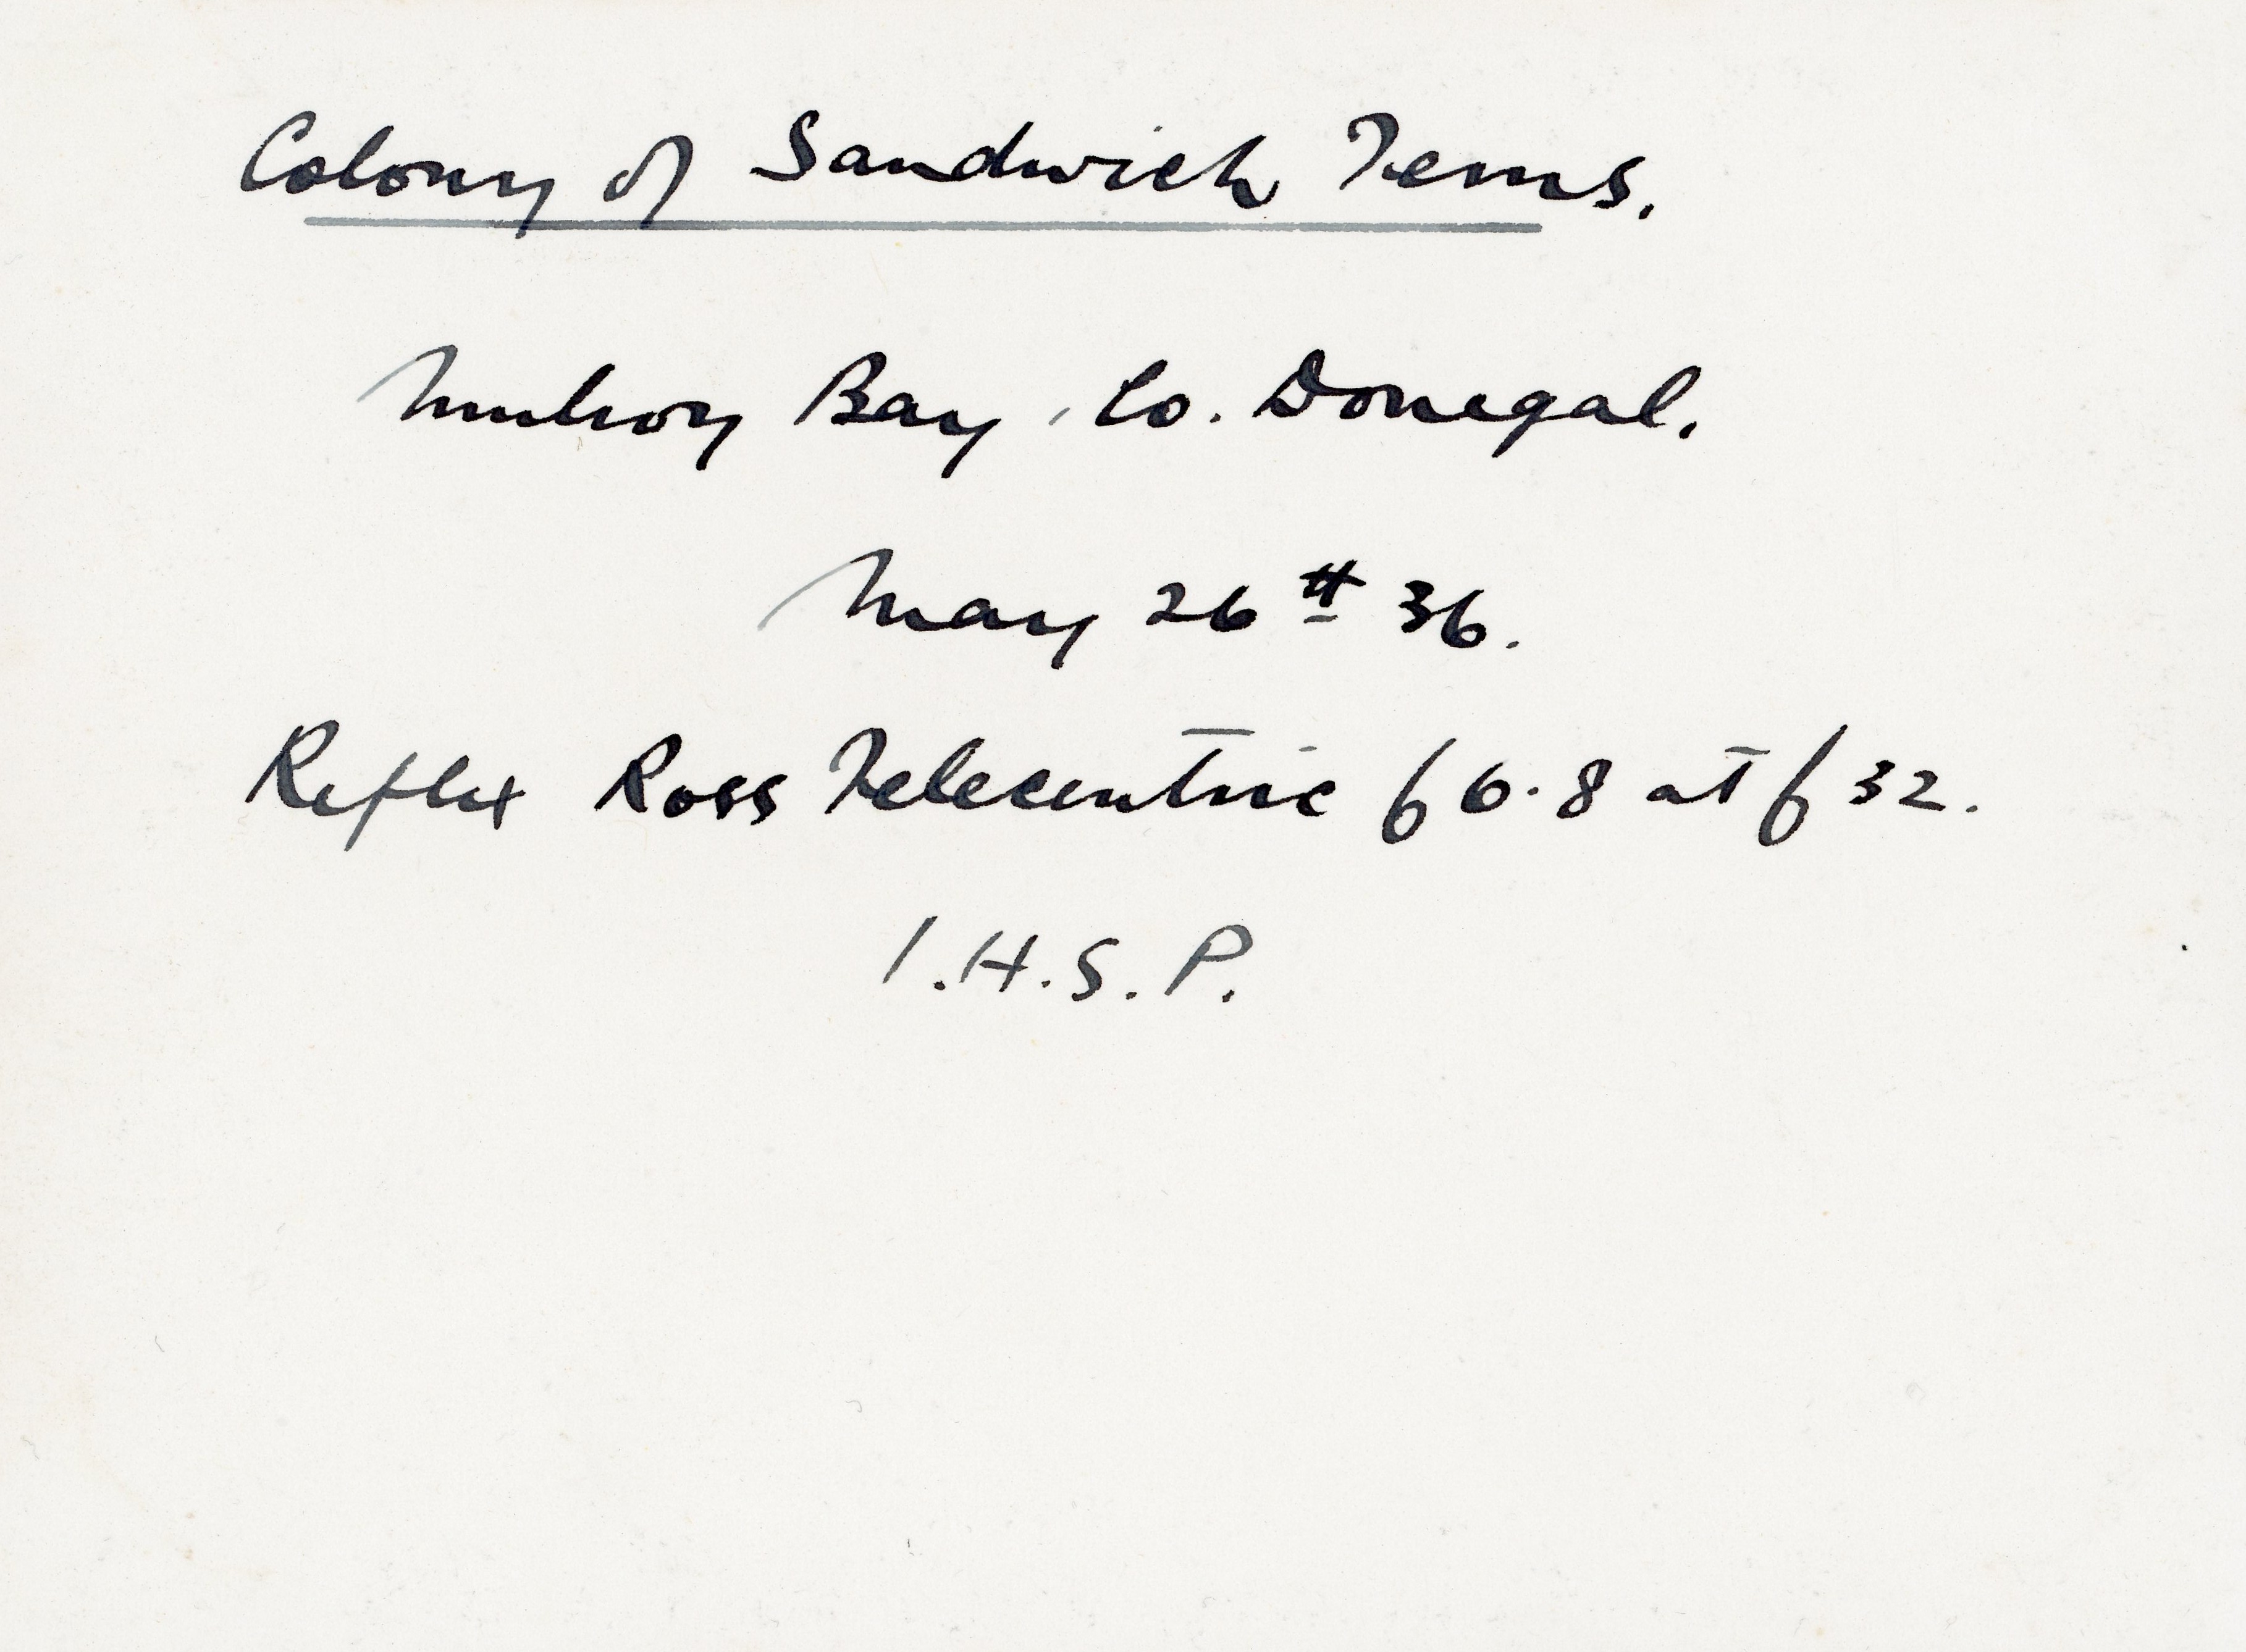 Colony of Sandwich Terns.
Mulroy Bay, Co. Donegal.
May 26th 36.
Reflex Ross Telecentric f6.8 at f32.
I.H.S.P.